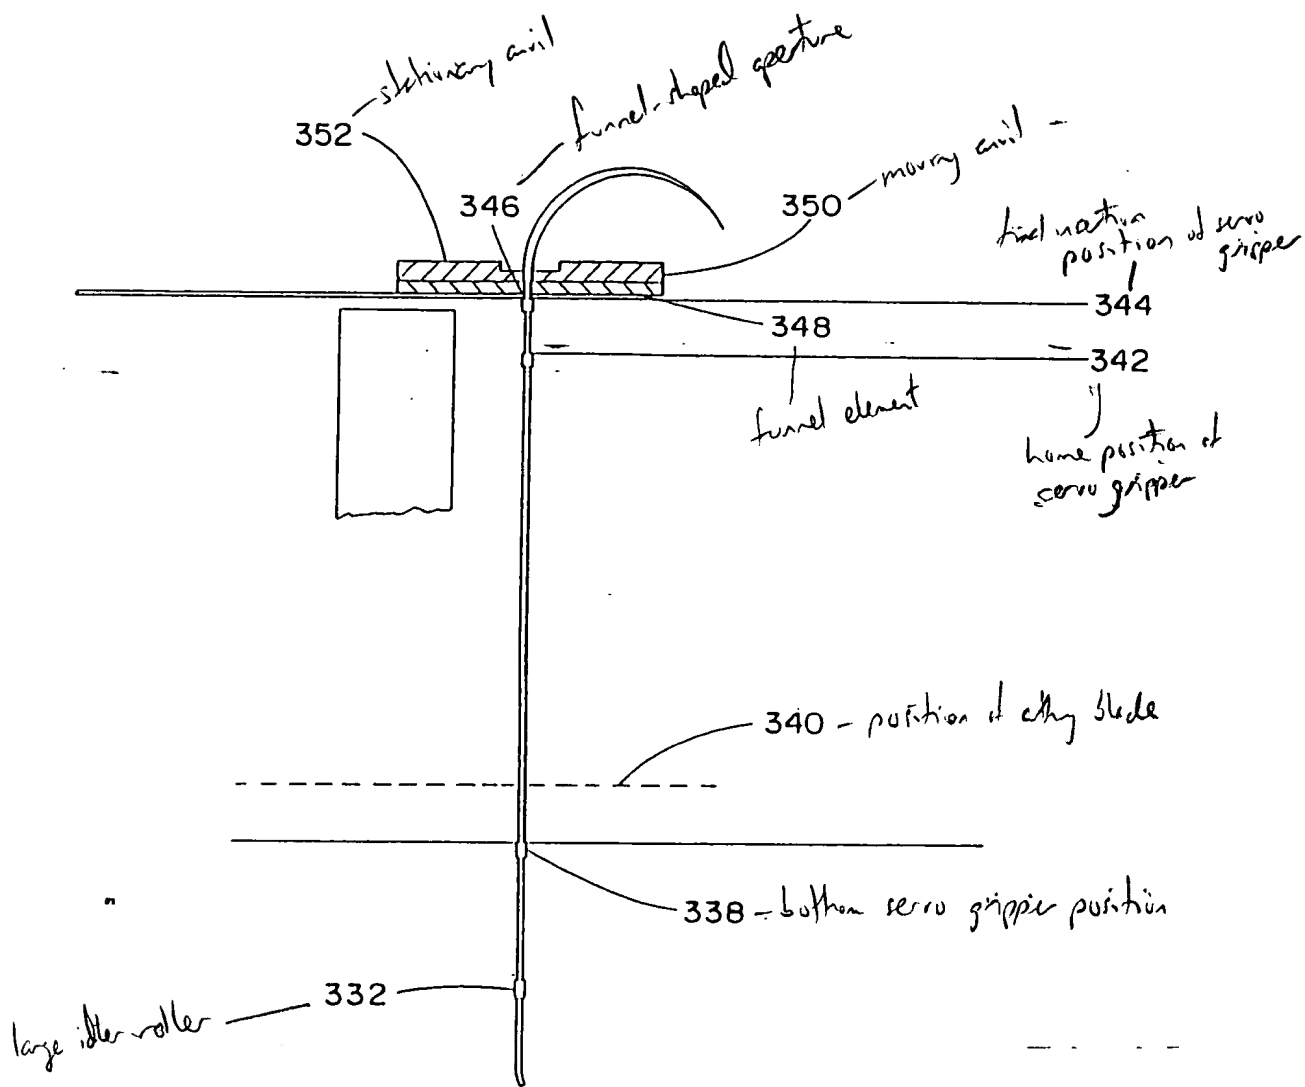 stationary anvil
352
funnel-shaped aperture
346
350 - moving anvil -
final insertion
position of servo
gripper
344
348
342
funnel element
home position of
servo gripper
340 - position of cutting blade
338 - bottom servo gripper position
332
large idler roller